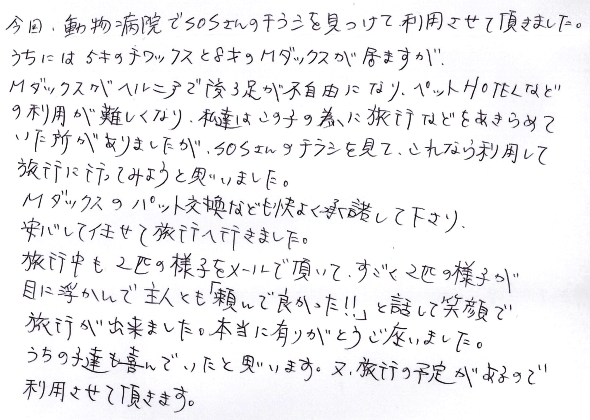 今回、動物病院でSOSさんのチラシを見つけて利用させて頂きました。
うちには5才のチワックスと8才のMダックスが居ますが、
Mダックスがヘルニアで後3足が不自由になり、ペットHOTELなど
の利用が難しくなり、私達はこの子の為に旅行などをあきらめて
いた所がありましたが、SOSさんのチラシを見て、これなら利用して
旅行に行ってみようと思いました。
Mダックスのパット交換なども快よく承諾して下さり、
安心して任せて旅行へ行きました。
旅行中も2匹の様子をメールで頂いて、すごく2匹の様子が
目に浮かんで主人とも「頼んで良かった!!」と話して笑顔で
旅行が出来ました。本当に有りがとうご座いました。
うちの子達も喜んでいたと思います。又、旅行の予定があるので
利用させて頂きます。